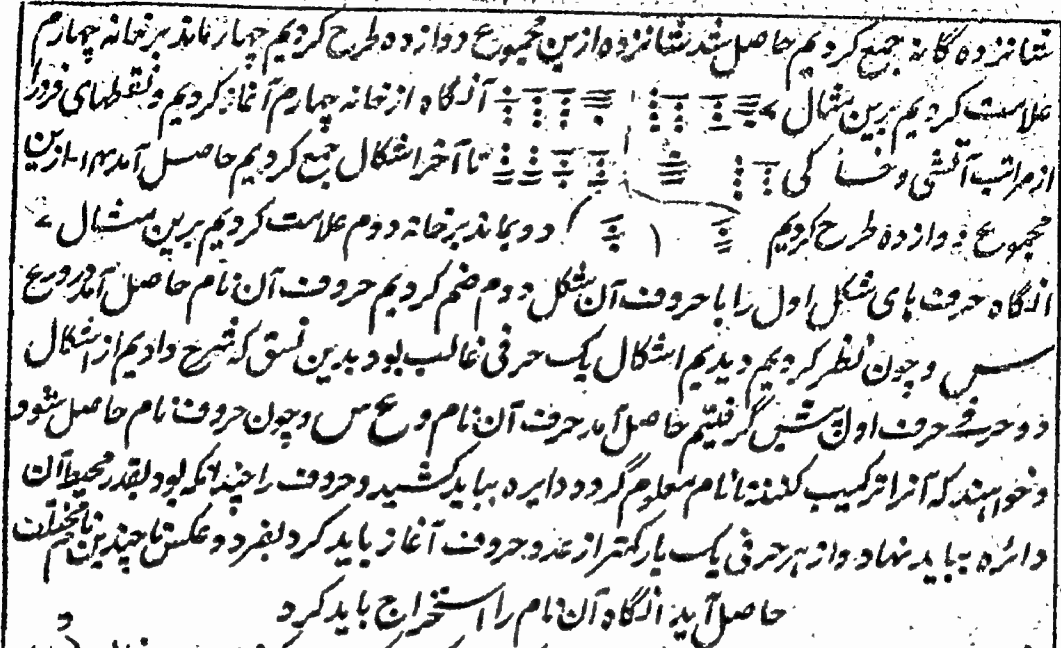 شانزده گانه جمع کردیم حاصل شد شانزده ازین مجموع دوازده طرح کردیم چهار ماند برخانه چهارم
علامت کردیم برین مثال آنگاه ازخانه چهارم آغاز کردیم و نقطهای فرد را
ازمراتب آتشی و خاکی تا آخر اشکال جمع کردیم حاصل آمد ۱۴ ازین
مجموع دوازده طرح کردیم دو بماند برخانه دوم علامت کردیم برین مثال
آنگاه حرفهای شکل اول را با حروف آن شکل دوم ضم کردیم حروف آن نام حاصل آمد و ع
س و چون نظر کردیم دیدیم اشکال یک حرفی غالب بود بدین نسق که شرح دادیم از اشکال
دو حرفی حرف اول پیشین گرفتیم حاصل آمد حرف آن نام و ع س و چون حروف نام حاصل شود و
و خواهند که آنرا ترکیب کنند تا نام معلوم گردد دایره بباید کشید و حروف را چندانکه بود بقدر محیط آن
دائره بباید نهاد و از هر حرفی یک بار کمتر از عدد حروف آغاز باید کرد بفرد و عکس تا چندین نام مختلف
حاصل آید آنگاه آن نام را استخراج باید کرد